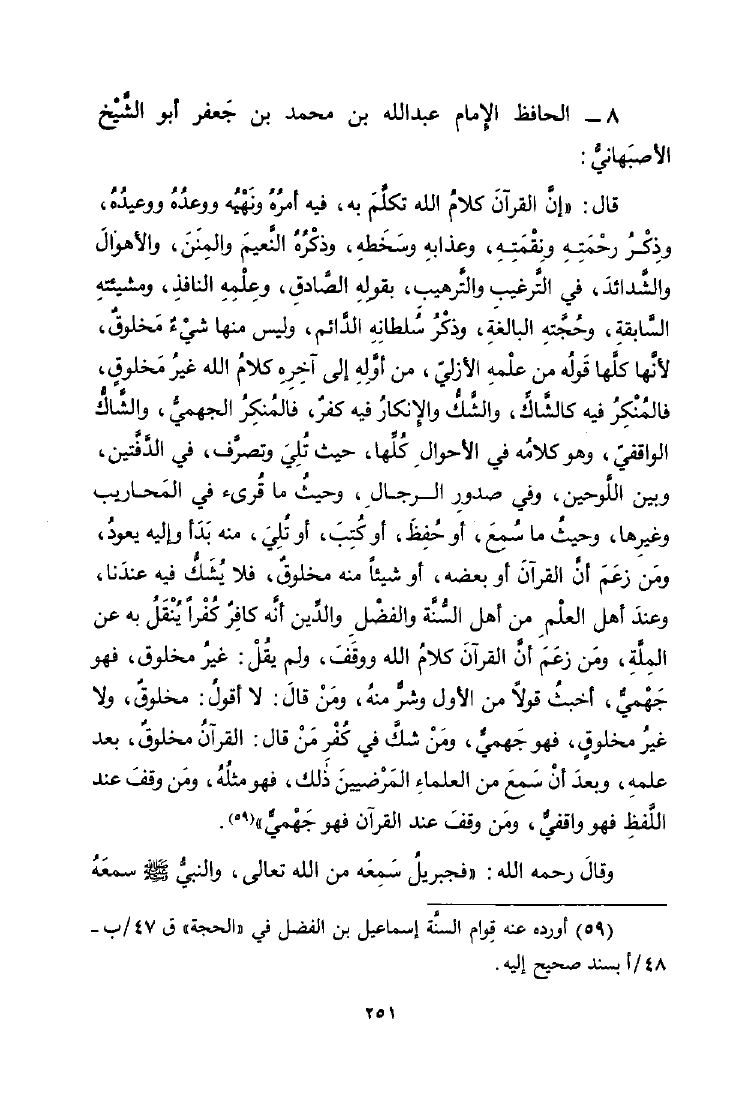 ٨ ــ الحافظ الإمام عبدالله بن محمد بن جَعفر أبو الشَّيْخ
الأصبَهانيُّ :
قال : «إنَّ القرآنَ كلامُ الله تكلَّمَ به، فيه أمرُهُ ونَهْيُه ووعدُهُ ووعيدُهُ،
وذِكْـرُ رحْمَتِـهِ ونِقْمَتِـهِ، وعذابهِ وسَخَطهِ، وذكْرُهُ النَّعيمَ والمِنَنَ، والأهْوالَ
والشَّدائدَ، في التَّرغيب والتَّرهيب، بقولهِ الصَّادقِ، وعِلْمِهِ النافذِ، ومشيئتهِ
السَّابقةِ، وحُجَّتهِ البالغةِ، وذكْرُ سُلطانهِ الدَّائم، وليس منها شيْءٌ مَخلوقٌ،
لأنَّها كلَّها قولُه من علْمهِ الأزليّ، من أوَّلِه إلى آخِرِه كلامُ الله غيرُ مَخلوقٍ،
فالمُنْكِرُ فيه كالشَّاكِّ، والشَّكُّ والإِنكارُ فيه كفرٌ، فالمُنكِرُ الجهميُّ، والشَّاكُّ
الواقفيّ، وهو كلامُه في الأحوالِ كُلِّها، حيث تُلِيَ وتصرَّف، في الدَّفَّتين،
وبين اللَّوحين، وفي صدورِ الــرجــالِ، وحيثُ ما قُرِىء في المَحـاريب
وغيرها، وحيثُ ما سُمِعَ، أو حُفِظَ، أو كُتِبَ، أو تُلِيَ، منه بَدَأ وإليه يعودُ،
ومَن زعَمَ أنَّ القرآنَ أو بعضَه، أو شيئاً منه مخلوقٌ، فلا يُشَكُّ فيه عندَنا،
وعندَ أهل العلْمِ من أهل السُّنَّة والفضْلِ والدِّين أنَّه كافرٌ كُفْراً يُنْقَلُ به عن
المِلَّةِ، ومَن زعَمَ أنَّ القرآنَ كلامُ الله ووقَفَ، ولم يقُلْ: غيرُ مخلوق، فهو
جَهْميٌّ، أخبثُ قولاً من الأول وشرٌّ منهُ، ومَنْ قالَ: لا أقولُ: مخلوقٌ، ولا
غيرُ مخلوقٍ، فهو جَهميٌّ، ومَنْ شكَّ في كُفْرِ مَنْ قال: القرآنُ مخلوقٌ، بعد
علمهِ، وبعدَ أنْ سَمِعَ من العلماءِ المَرْضيينَ ذٰلك، فهو مثلُهُ، ومَن وقفَ عند
اللَّفظِ فهو واقفيٌّ، ومَن وقفَ عند القرآن فهو جَهْميٌّ»(٥٩).
وقالَ رحمه الله: «فجبريلُ سَمِعَه من الله تعالى، والنبيُّ ﷺ سمعَهُ
(٥٩) أورده عنه قِوام السنُّة إسماعيل بن الفضل في «الحجة» ق ٤٧/ب ـ
٤٨/أ بسند صحيح إليه.
٢٥١